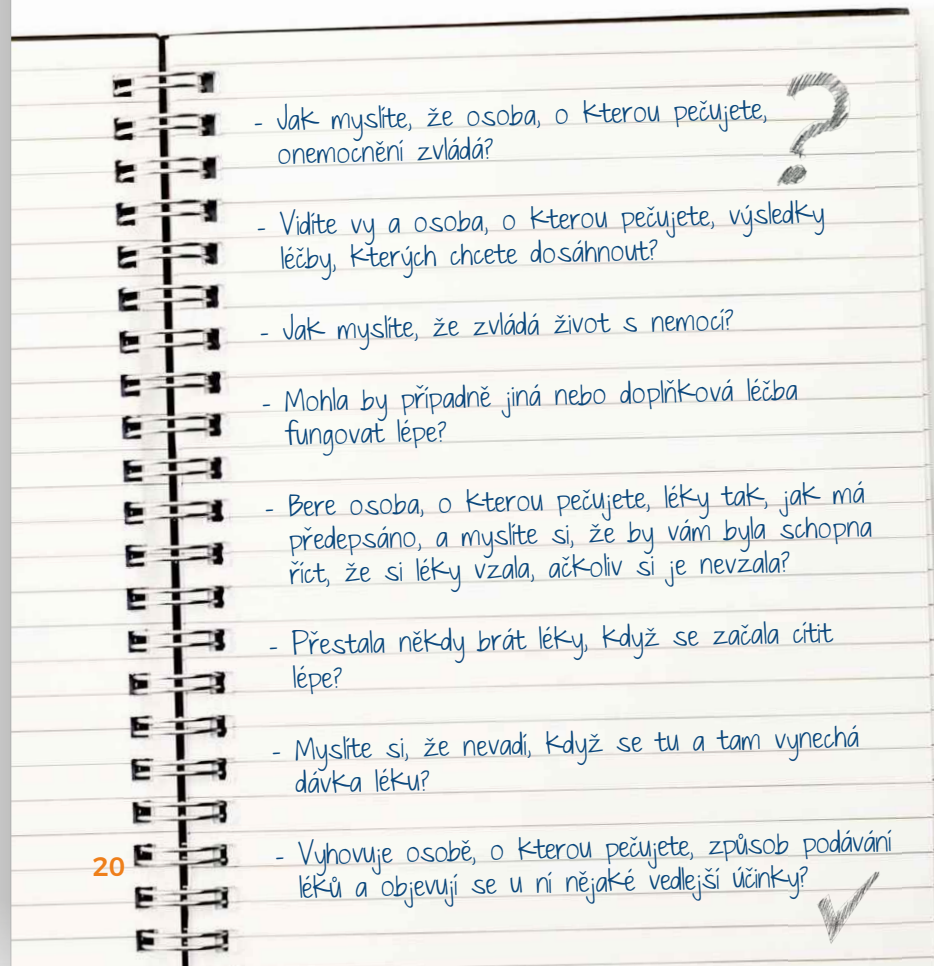 - Jak myslíte, že osoba, o kterou pečujete,
onemocnění zvládá?
- Vidíte vy a osoba, o kterou pečujete, výsledky
léčby, kterých chcete dosáhnout?
- Jak myslíte, že zvládá život s nemocí?
- Mohla by případně jiná nebo doplňková léčba
fungovat lépe?
- Bere osoba, o kterou pečujete, léky tak, jak má
předepsáno, a myslíte si, že by vám byla schopna
říct, že si léky vzala, ačkoliv si je nevzala?
- Přestala někdy brát léky, když se začala cítit
lépe?
- Myslíte si, že nevadí, když se tu a tam vynechá
dávka léku?
- Vyhovuje osobě, o kterou pečujete, způsob podávání
léků a objevují se u ní nějaké vedlejší účinky?
20
?